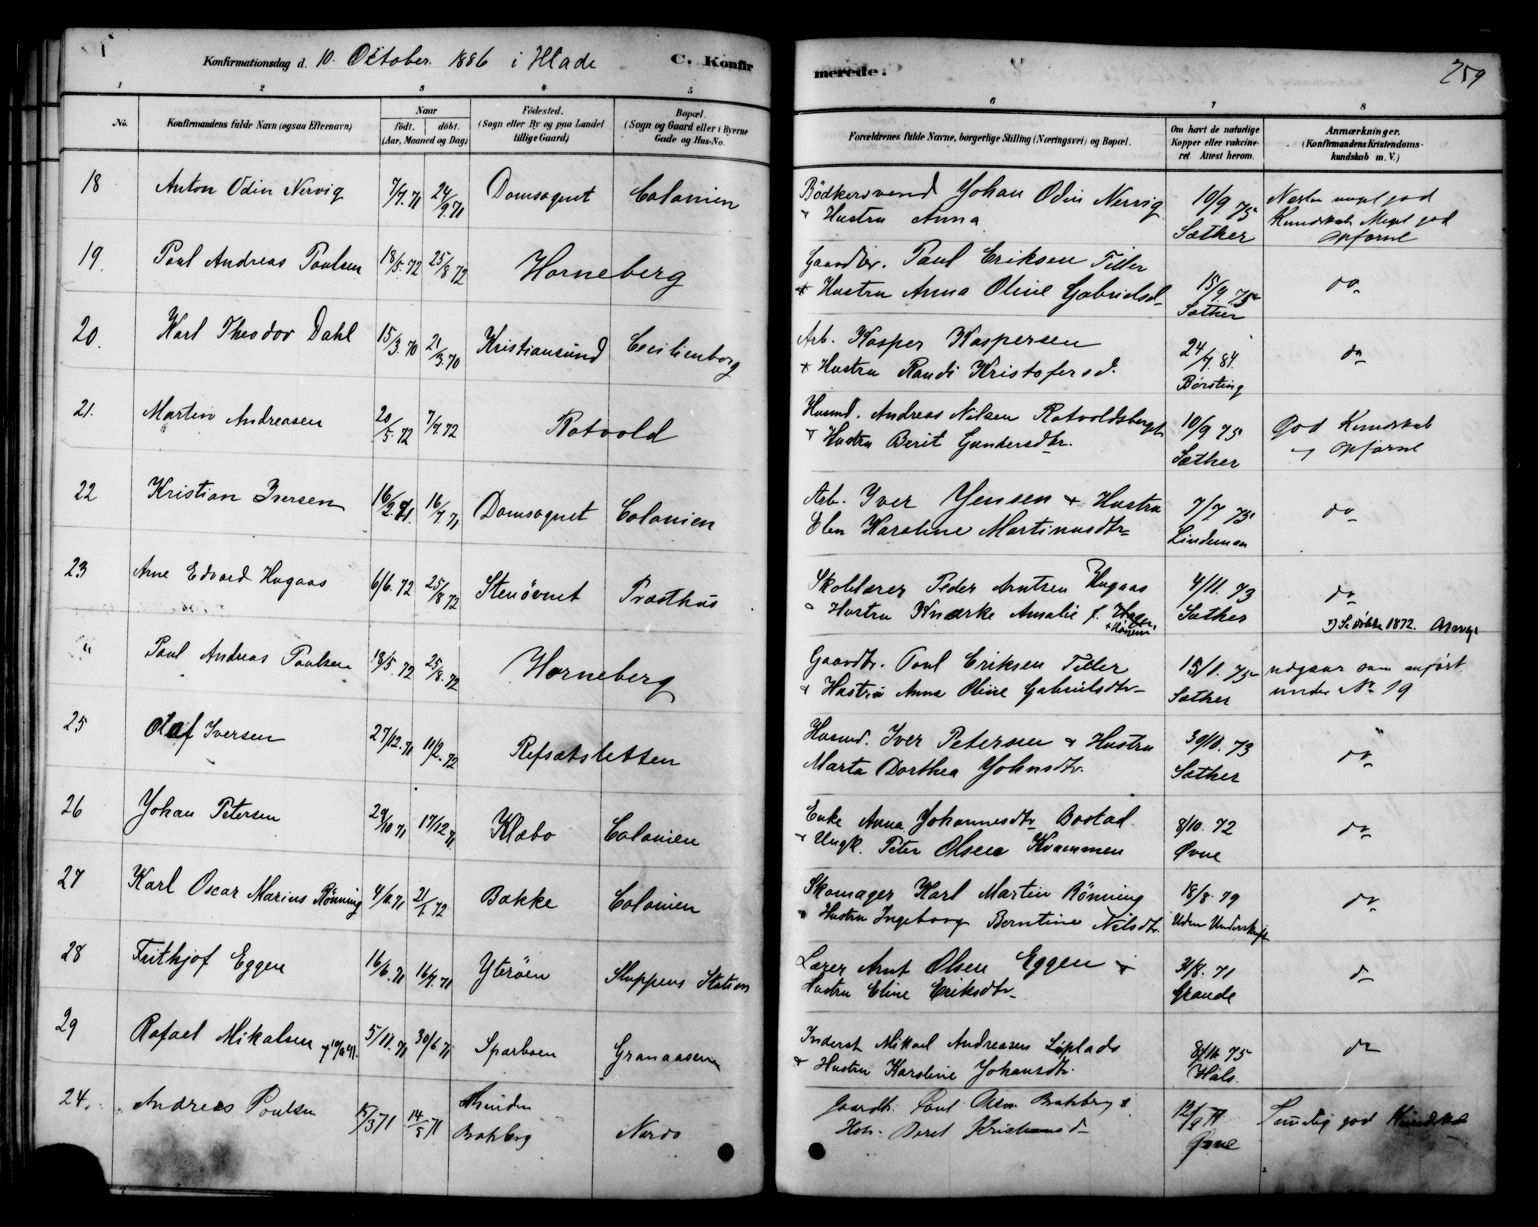 Konfirmationsdag d. 10. October 1886 i Hlade C. Konfir
merede. 259
1 2 3 4 5
6 7 8
No. Konfirmandens fulde Navn (ogsaa Efternavn) Naar født. døbt. (Aar, Maaned og Dag) Fødested. (Sogn eller By og paa Landet tillige Gaard) Bopæl. (Sogn og Gaard eller i Byerne Gade og Hus-No.
Forældrenes fulde Navne, borgerlige Stilling (Næringsvei) og Bopæl. Om havt de naturlige Kopper eller vakcineret. Attest herom. Anmærkninger. (Konfirmandens Kristendomskundskab m. V.)
18 Anton Odin Nervig 7/7.71 24/9.71 Domsognet Colonien Bödkersvend Johan Odin Nervig 10/9 75 Næsten meget god
Hustru Anna Sæther Kundskab Meget god
opførsel
19. Paul Andreas Poulsen 18/5.72 25/8 72 Horneberg Gaardbr. Paul Eriksen Tiller 15/9.75 do
+ Hustru Anna Oline Gabrielsd. Sæther
20. Karl Theodor Dahl 15/3.70 21/3.70 Kristiansund Cecilienborg Arb. Kasper Kaspersen 24/7.84. do
+ Hustru Randi Kristofersd. Børsting
21. Martin Andreasen 20/5.72 7/7.72 Rotvold Husmd. Andreas Nilsen Rotvoldsberget 10/9 75 God Kundskab
+ Hustru Berit Gundersdtr. Sæther og opførsel
22 Kristian Iversen 16/2.71. 16/7.71 Domsognet Colonien Arb. Iver Jensen + Hustru 7/7 75 do
Elen Karoline Martinusdtr Lindeman
23 Arne Edvard Hugaas 6/6.72 25/8 72 Stenövnet Præsthus Skolelærer Peder Arntsen Hugaas 4/11.73 do
Hustru Amalie f. Hagen Sæther Se döbte 1872.
" Paul Andreas Poulsen 18/5.72 25/8.72 Horneberg Gaardbr. Paul Eriksen Tiller 75 udgaar som anført
+ Hustru Anna Oline Gabrielsdtr Sæther under No 19
25 Olaf Iversen 27/12.71 11/2.72 Refsætsletten Husmd. Iver Petersen + Hustru 30/10.73 do
Marta Dorthea Johnsdtr. Sæther
26 Johan Petersen 29/10 71 17/12 71 Klæbo Colonien Enke Anna Johannesdtr Bostad 8/10.72 do
+ Ungk. Peter Olsen Kvammen Øvne
27 Karl Oscar Marius Rönning 72 Bakke Colonien Skomager Karl Martin Rönning 18/8.79 do
Hustru Ingeborg Berntine Nilsdtr Uden Underskrift
28 Frithjof Eggen 16/6.71 16/7.71 Yteröen Sluppens Station Lærer Arnt Olsen Eggen + 31/8.71 do
Hustru Eline Eriksdtr. Grande
29 Rafael Mikalsen 5/11.71 30/6 71 Sparboen Granaasen Inderst Mikael Andreasen Liplads 8/10.75 do
+ Hustru Karoline Johansdtr. Hals.
24. Andreas Poulsen 15/3 71 14/5 71 Strinden Gaardb. Paul Olsen Bakberg
Bakberg Nardo Berit Øvne god Kundskab